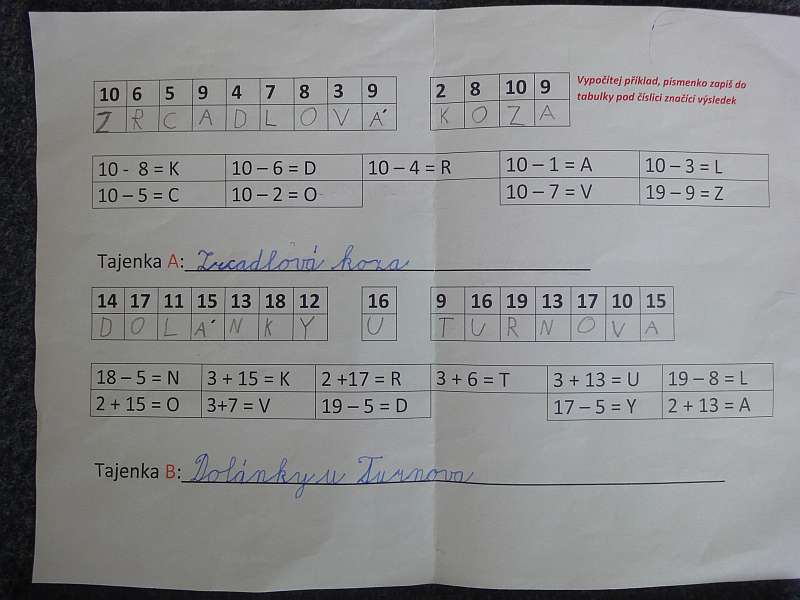 10 6 5 9 4 7 8 3 9 2 8 10 9 Vypočítej příklad, písmenko zapiš do
Z R C A D L O V Á K O Z A tabulky pod číslici značící výsledek
10 - 8 = K 10 – 6 = D 10 – 4 = R 10 – 1 = A 10 – 3 = L
10 – 5 = C 10 – 2 = O 10 – 7 = V 19 – 9 = Z
Tajenka A: Zrcadlová koza
14 17 11 15 13 18 12 16 9 16 19 13 17 10 15
D O L Á N K Y U T U R N O V A
18 – 5 = N 3 + 15 = K 2 +17 = R 3 + 6 = T 3 + 13 = U 19 – 8 = L
2 + 15 = O 3+7 = V 19 – 5 = D 17 – 5 = Y 2 + 13 = A
Tajenka B: Dolánky u Turnova